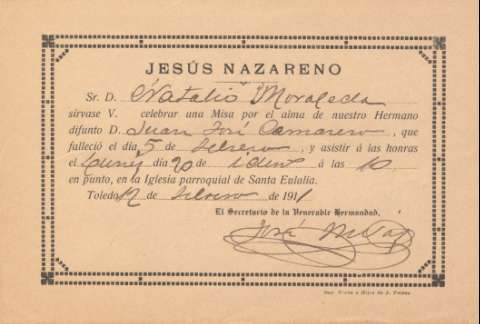 JESÚS NAZARENO
Sr. D. Natalio Moraleda
sírvase V. celebrar una Misa por el alma de nuestro Hermano
difunto D. Juan José Camarero, que
falleció el día 5 de febrero, y asistir á las honras
el Lunes día 20 de idem á las 10
en punto, en la Iglesia parroquial de Santa Eulalia.
Toledo 12 de febrero de 1911
El Secretario de la Venerable Hermandad,
José
Imp. Viuda é Hijos de J. Peláez